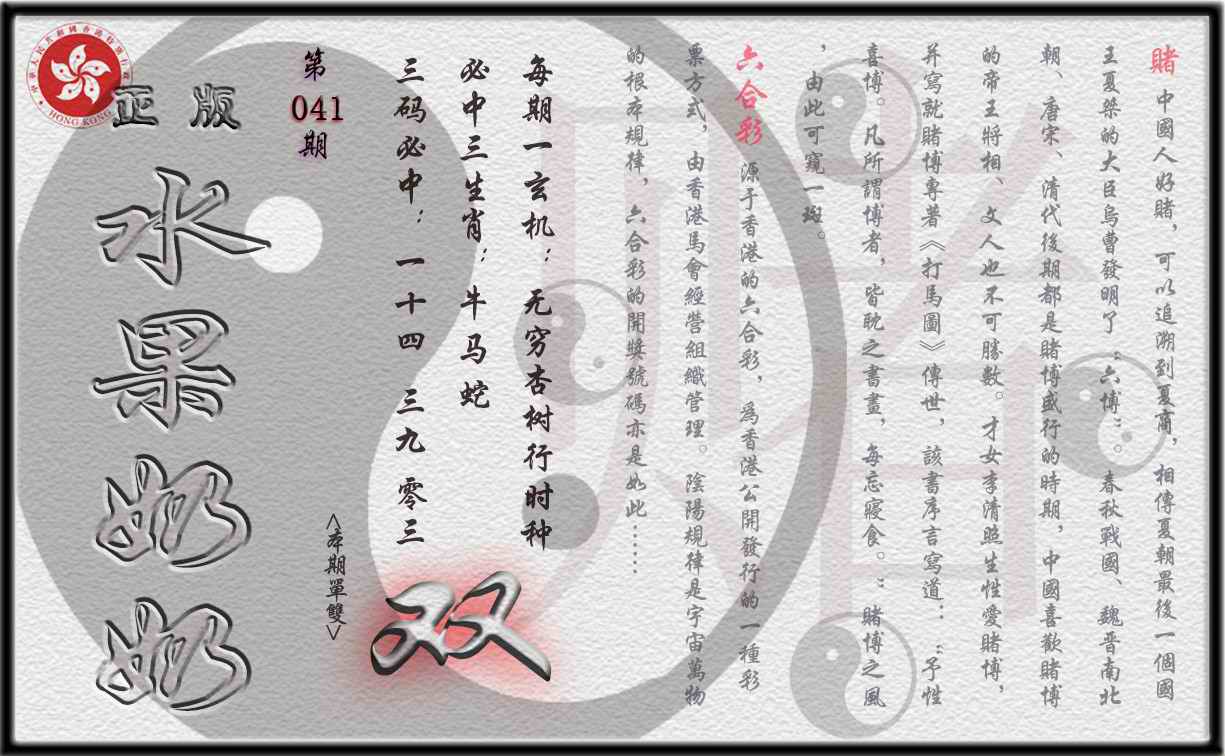 賭 中國人好賭，可以追溯到夏商，相傳夏朝最後一個國
王夏桀的大臣烏曹發明了“六博”。春秋戰國、魏晋南北
朝、唐宋、清代後期都是賭博盛行的時期，中國喜歡賭博
的帝王將相、文人也不可勝數。才女李清照生性愛賭博，
并寫就賭博專著《打馬圖》傳世，該書序言寫道：“予性
喜博。凡所謂博者，皆耽之書畫，每忘寢食。”賭博之風
，由此可窺一斑。
六合彩 源于香港的六合彩，爲香港公開發行的一種彩
票方式，由香港馬會經營組織管理。陰陽規律是宇宙萬物
的根本規律，六合彩的開獎號碼亦是如此……
每期一玄机：无穷杏树行时种
必中三生肖：牛马蛇
三码必中：一十四 三九 零三
双
<本期單雙>
第
041
期
正版
水果奶奶
中華人民共和國香港特別行政區
HONG KONG
賭